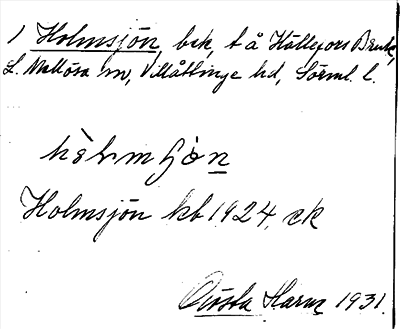 1 Holmsjön, bek, t å Hällefors Bruk,
L. Mellösa sn, Villåttinge hd, Sörml. l.
hòlmʃön
Holmsjön kb 1924, ek
Gösta Harne 1931.